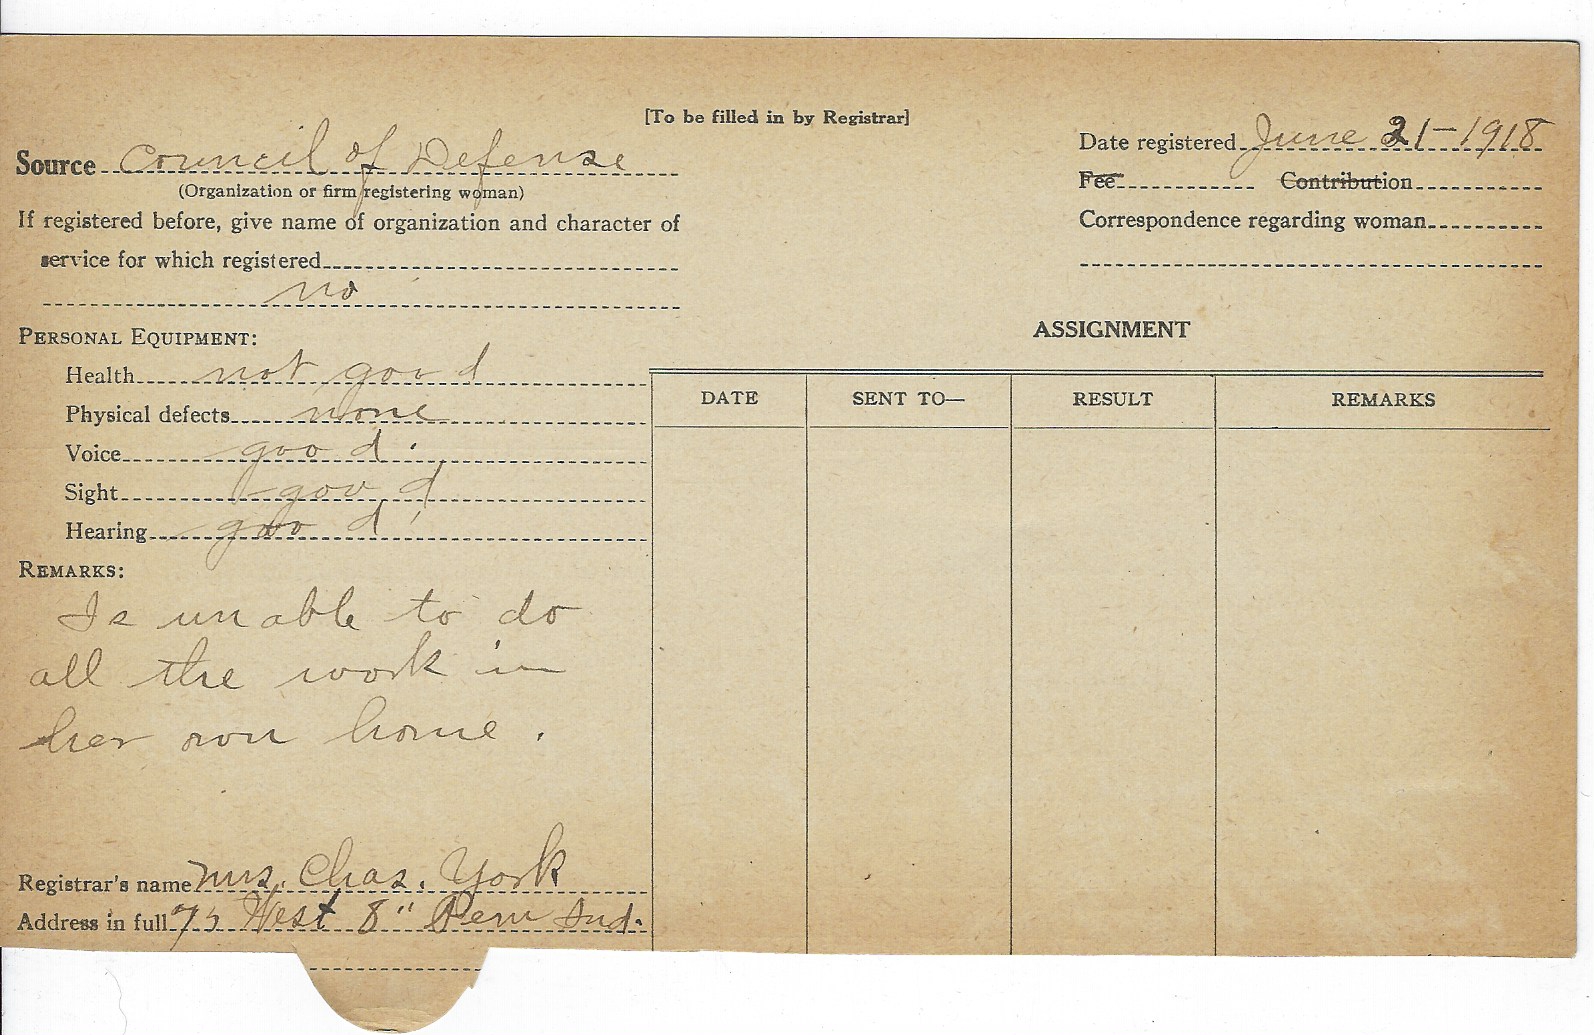 [To be filled in by Registrar]
Source Council of Defense
(Organization or firm registering woman)
If registered before, give name of organization and character of
service for which registered
no
Date registered June 21-1918
Fee Contribution
Correspondence regarding woman
PERSONAL EQUIPMENT:
Health not good
Physical defects none
Voice good.
Sight good
Hearing good
REMARKS:
Is unable to do
all the work in
her own home.
Registrar's name Mrs. Chas. York
Address in full 75 West 8" Peru Ind.
ASSIGNMENT
DATE SENT TO— RESULT REMARKS